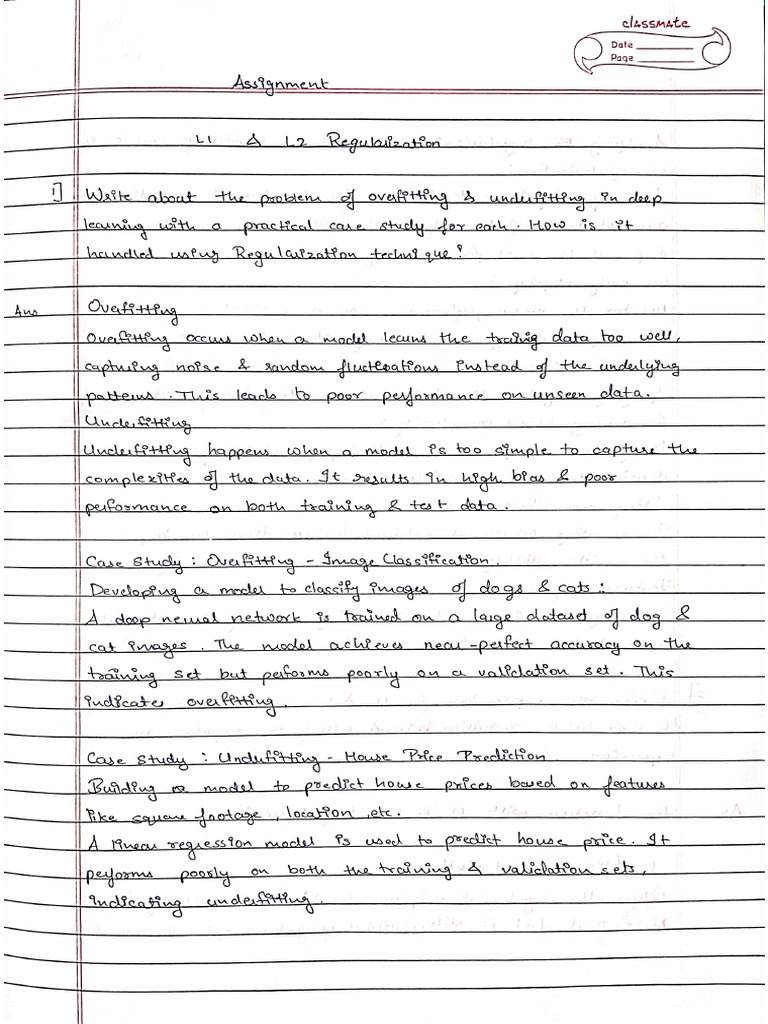 classmate
Date
Page
Assignment
L1 & L2 Regularization
1] Write about the problem of overfitting & underfitting in deep
learning with a practical case study for each. How is it
handled using Regularization technique?
Ans Overfitting
Overfitting occurs when a model learns the traing data too well,
capturing noise & random fluctuations instead of the underlying
patterns. This leads to poor performance on unseen data.
Underfitting
Underfitting happens when a model is too simple to capture the
complexities of the data. It results in high bias & poor
performance on both training & test data.
Case Study : Overfitting - Image Classification.
Developing a model to classify images of dogs & cats :
A deep neural network is trained on a large dataset of dog &
cat images. The model achieves near-perfect accuracy on the
training set but performs poorly on a validation set. This
indicates overfitting.
Case Study : Underfitting - House Price Prediction
Building a model to predict house prices based on features
like square footage, location, etc.
A linear regression model is used to predict house price. It
performs poorly on both the training & validation sets,
indicating underfitting.